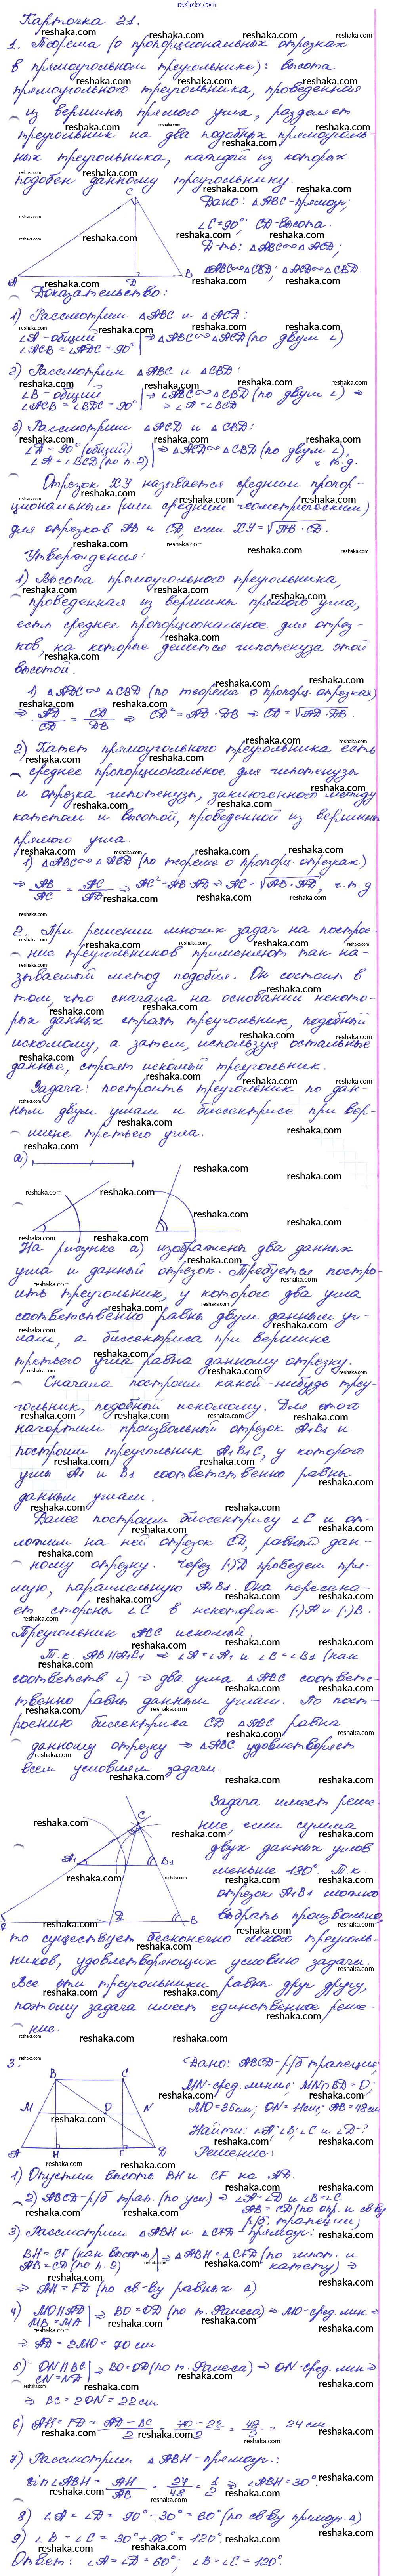 reshaka.com
Карточка 21.
1. Теорема (о пропорциональных отрезках
в прямоугольном треугольнике): высота
прямоугольного треугольника, проведенная
из вершины прямого угла, разделяет
треугольник на два подобных прямоуголь-
ных треугольника, каждый из которых
подобен данному треугольнику.
Дано: △ABC-прямоуг;
∠C=90°; CD-высота.
Д-ть: △ABC∾△ACD;
△ABC∾△CBD; △ACD∾△CBD.
C
A D B
Доказательство:
1) Рассмотрим △ABC и △ACD:
∠A-общий
∠ACB = ∠ADC = 90° | ⇒ △ABC∾△ACD (по двум ∠)
2) Рассмотрим △ABC и △CBD:
∠B-общий
∠ACB = ∠BDC = 90° | ⇒ △ABC∾△CBD (по двум ∠) ⇒
⇒ ∠A = ∠BCD
3) Рассмотрим △ACD и △CBD:
∠D = 90° (общий)
∠A = ∠BCD (по п.2) | ⇒ △ACD∾△CBD (по двум ∠),
ч.т.д.
Отрезок XY называется средним пропор-
циональным (или средним геометрическим)
для отрезков AB и CD, если XY=√AB·CD.
Утверждения:
1) Высота прямоугольного треугольника,
проведенная из вершины прямого угла,
есть среднее пропорциональное для отрез-
ков, на которые делится гипотенуза этой
высотой.
1) △ADC∾△CBD (по теореме о пропорц. отрезках)
⇒ AD/CD = CD/DB ⇒ CD² = AD·DB ⇒ CD = √AD·DB.
2) Катет прямоугольного треугольника есть
среднее пропорциональное для гипотенузы
и отрезка гипотенузы, заключенного между
катетом и высотой, проведенной из вершины
прямого угла.
1) △ABC∾△ACD (по теореме о пропорц. отрезках)
⇒ AB/AC = AC/AD ⇒ AC² = AB·AD ⇒ AC = √AB·AD, ч.т.д
2. При решении многих задач на построе-
ние треугольников применяют так на-
зываемый метод подобия. Он состоит в
том, что сначала на основании некото-
рых данных строят треугольник, подобный
искомому, а затем, используя остальные
данные, строят искомый треугольник.
Задача: построить треугольник по дан-
ным двум углам и биссектрисе при вер-
шине третьего угла.
а)
На рисунке а) изображены два данных
угла и данный отрезок. Требуется постро-
ить треугольник, у которого два угла
соответственно равны двум данным уг-
лам, а биссектриса при вершине
третьего угла равна данному отрезку.
Сначала построим какой-нибудь треу-
гольник, подобный искомому. Для этого
начертим произвольный отрезок A₁B₁ и
построим треугольник A₁B₁C, у которого
углы A₁ и B₁ соответственно равны
данным углам.
Далее построим биссектрису ∠C и от-
ложим на ней отрезок CD, равный дан-
ному отрезку. Через (·)D проведем пря-
мую, параллельную A₁B₁. Она пересека-
ет стороны ∠C в некоторых (·)A и (·)B.
Треугольник ABC искомый.
Т.к. AB∥A₁B₁ ⇒ ∠A=∠A₁ и ∠B=∠B₁ (как
соответств. ∠) ⇒ два угла △ABC соответс-
твенно равны данным углам. По пост-
роению биссектриса CD △ABC равна
данному отрезку ⇒ △ABC удовлетворяет
всем условиям задачи.
Задача имеет реше-
ние, если сумма
двух данных углов
меньше 180°. Т.к.
отрезок A₁B₁ можно
выбрать произвольно,
C
A₁ B₁
A D B
то существует бесконечно много треуголь-
ников, удовлетворяющих условию задачи.
Все эти треугольники равны друг другу,
поэтому задача имеет единственное реше-
ние.
3.
B C
M O N
A H F D
Дано: ABCD-р/б трапеция;
MN-сред. линия; MN∩BD=O;
MO=35см; ON=11см; AB=48см
Найти: ∠A; ∠B; ∠C и ∠D-?
Решение:
1) Опустим высоты BH и CF на AD.
2) ABCD-р/б трап. (по усл.) ⇒ ∠A=∠D и ∠B=∠C
AB=CD (по опр. и св-ву
р/б трапеции)
3) Рассмотрим △ABH и △CFD - прямоуг:
BH=CF (как высоты)
AB=CD (по п. 2) | ⇒ △ABH=△CFD (по гипот. и
катету) ⇒
⇒ AH=FD (по св-ву равных △)
4) MO∥AD
MB=MA | ⇒ BO=OD (по т. Фалеса) ⇒ MO-сред. лин. ⇒
⇒ AD=2MO=70см
5) ON∥BC
CN=ND | ⇒ BO=OD (по т. Фалеса) ⇒ ON-сред. лин ⇒
⇒ BC=2ON=22см
6) AH=FD = AD-BC/2 = 70-22/2 = 48/2 = 24 см
7) Рассмотрим △ABH-прямоуг.:
sin∠ABH = AH/AB = 24/48 = 1/2 ⇒ ∠ABH=30°.
8) ∠A=∠D = 90°-30°=60° (по св-ву прямоуг. △)
9) ∠B=∠C = 30°+90°=120°
Ответ: ∠A=∠D=60°; ∠B=∠C=120°